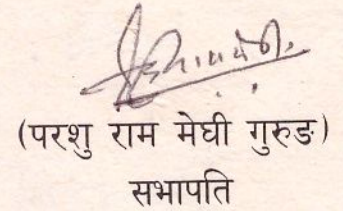 (परशु राम मेघी गुरुङ)
सभापति